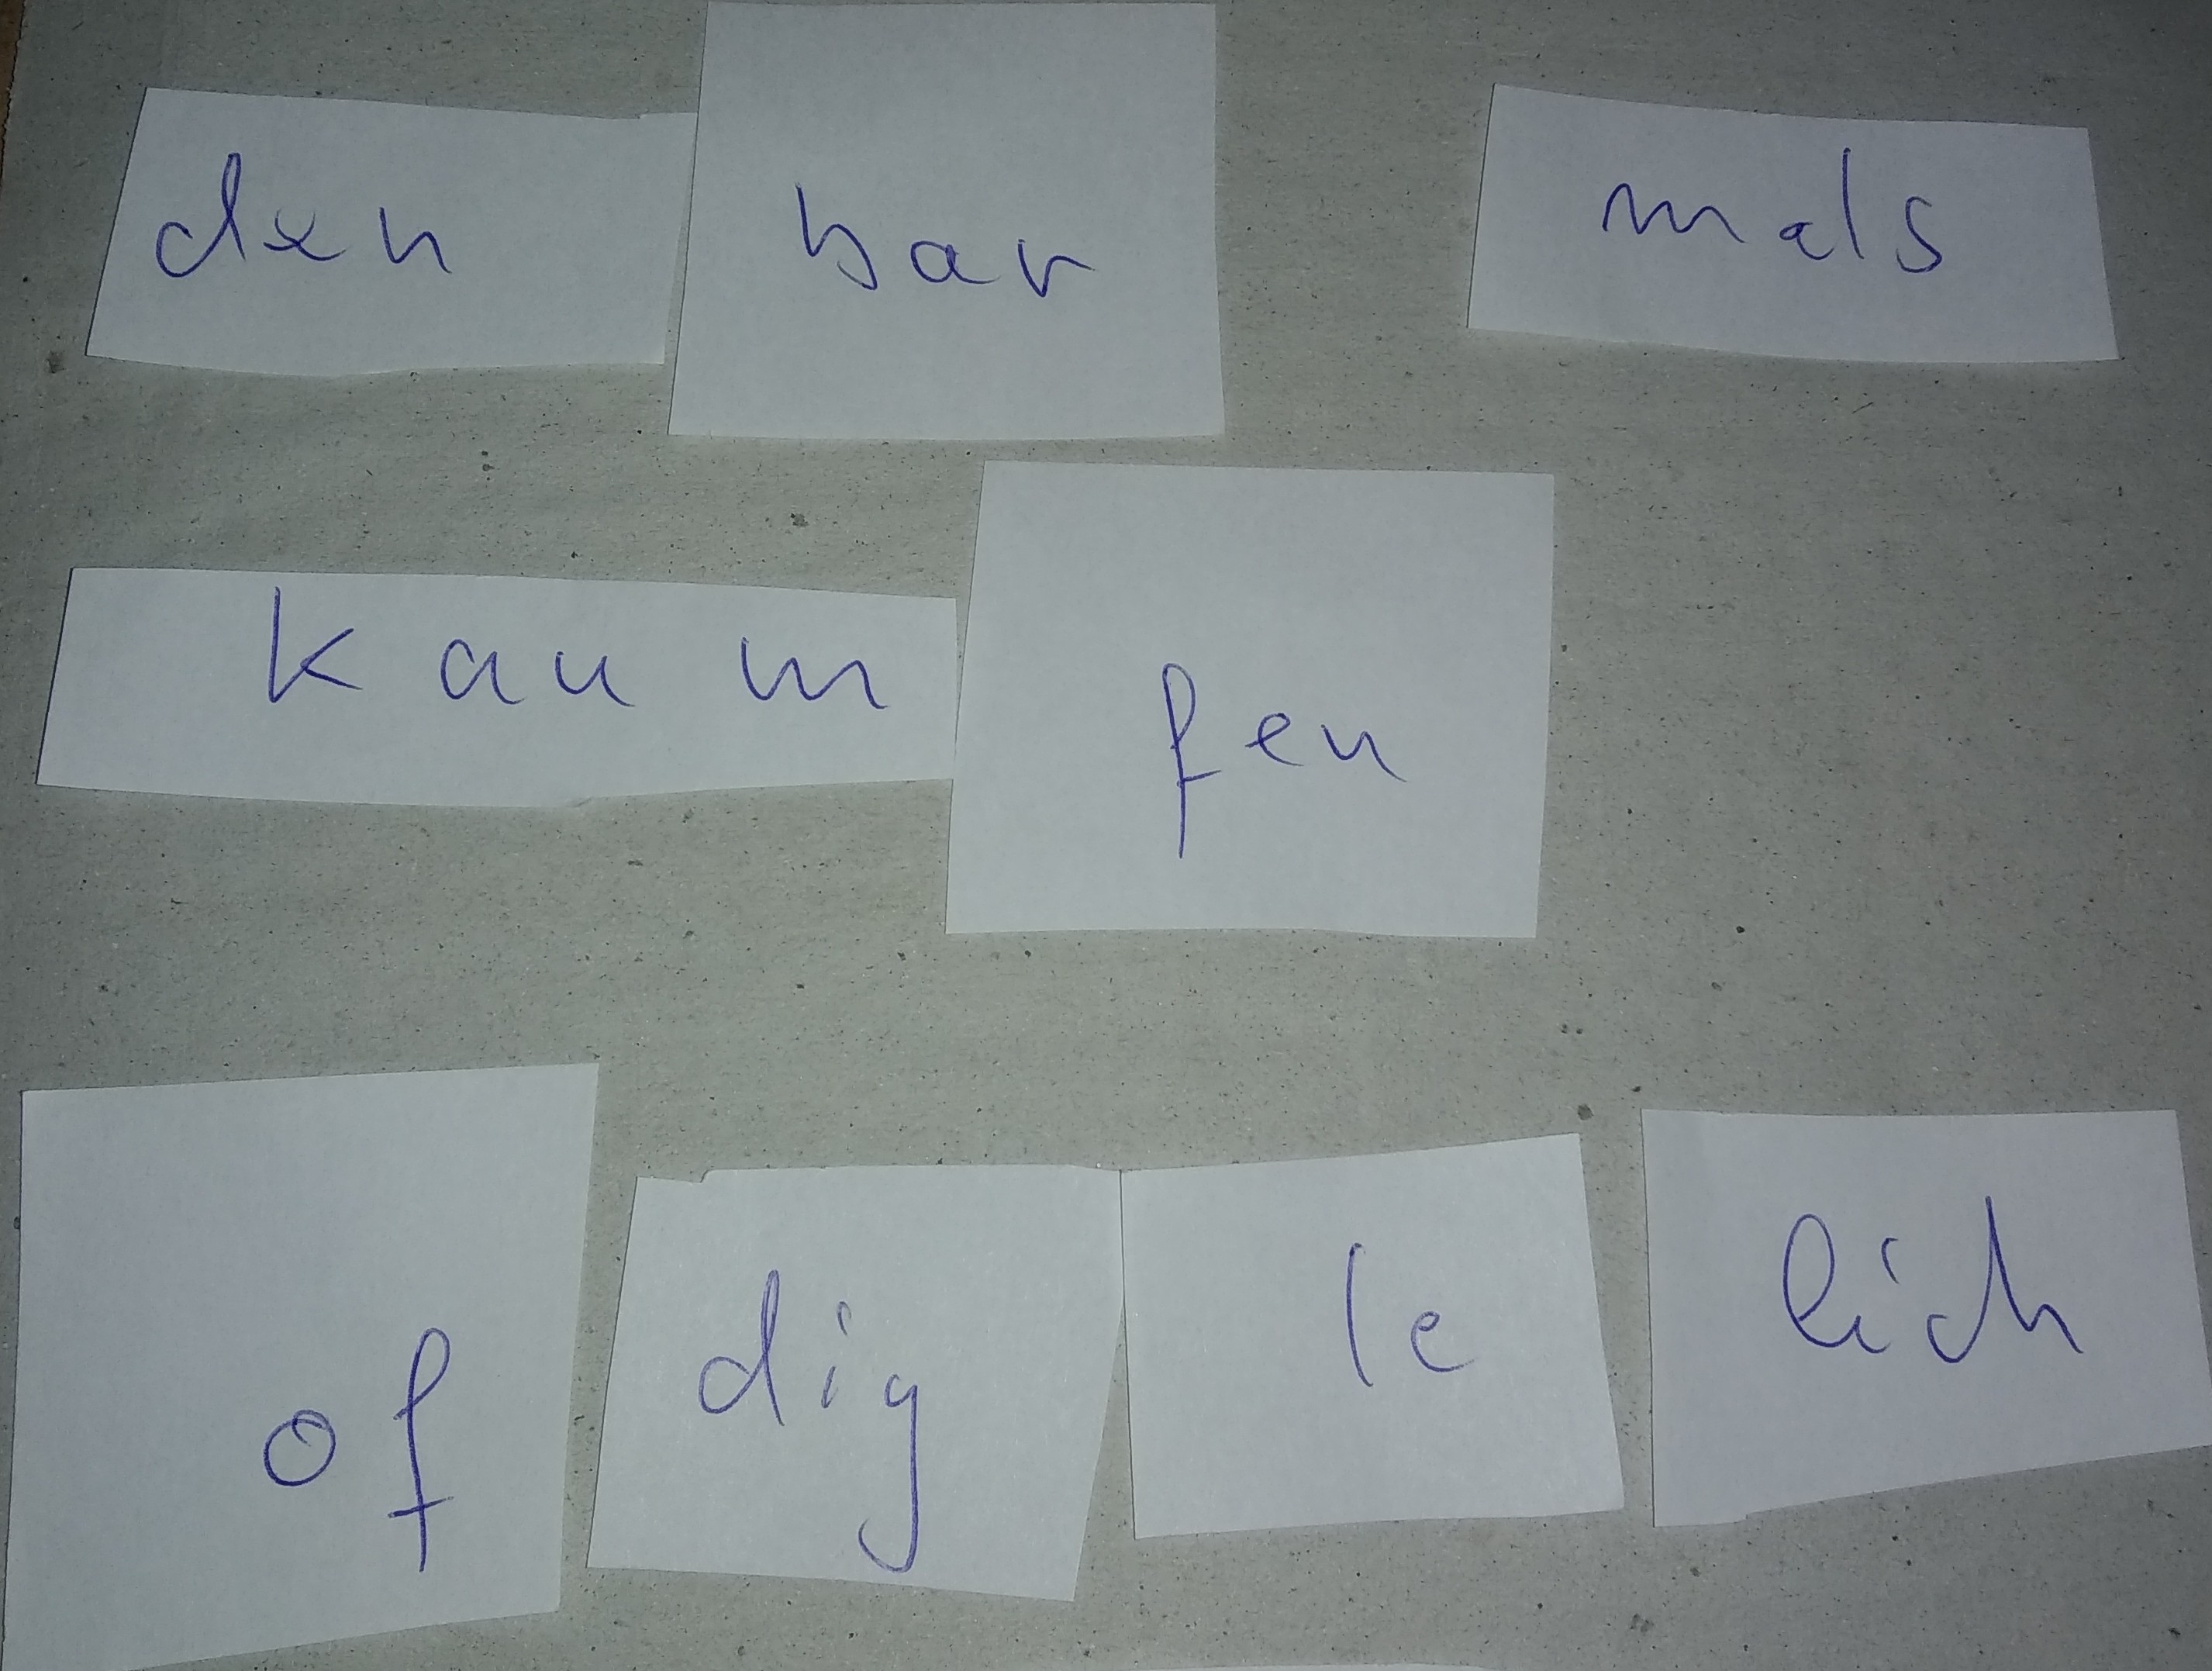 den bar mals
kaum fen
of dig le lich